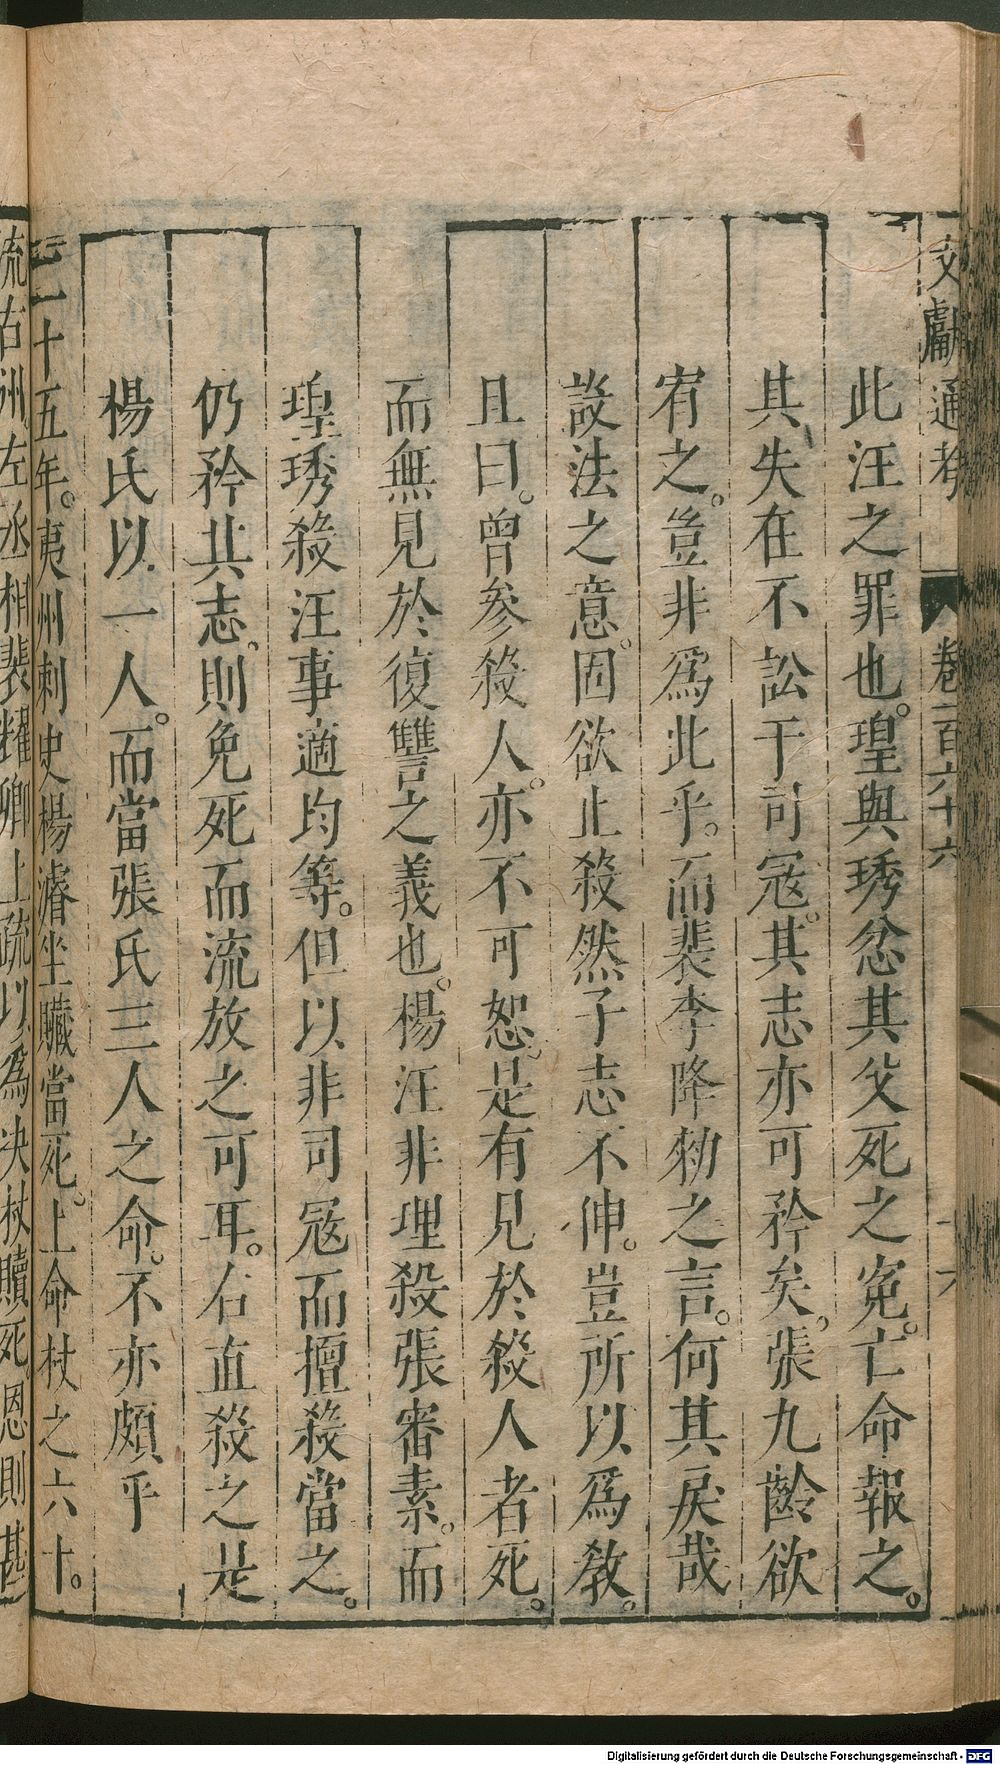 文獻通考 卷一百六十六 十六
此汪之罪也。瑝與琇忿其父死之寃。亡命報之。
其失在不訟于司冦。其志亦可矜矣。張九齡欲
宥之。豈非爲此乎。而裴李降勑之言。何其戾哉
設法之意。固欲止殺。然子志不伸。豈所以爲教。
且曰。曾參殺人。亦不可恕。是有見於殺人者死。
而無見於復讐之義也。楊汪非理殺張審素。而
瑝琇殺汪。事適均等。但以非司冦而擅殺當之。
仍矜其志。則免死而流放之可耳。若直殺之。是
楊氏以一人。而當張氏三人之命。不亦頗乎
二十五年。夷州刺史楊濬坐贓當死。上命杖之六十。
流右州左丞相裴耀卿上疏以爲决杖贖死恩則甚
Digitalisierung gefördert durch die Deutsche Forschungsgemeinschaft - DFG